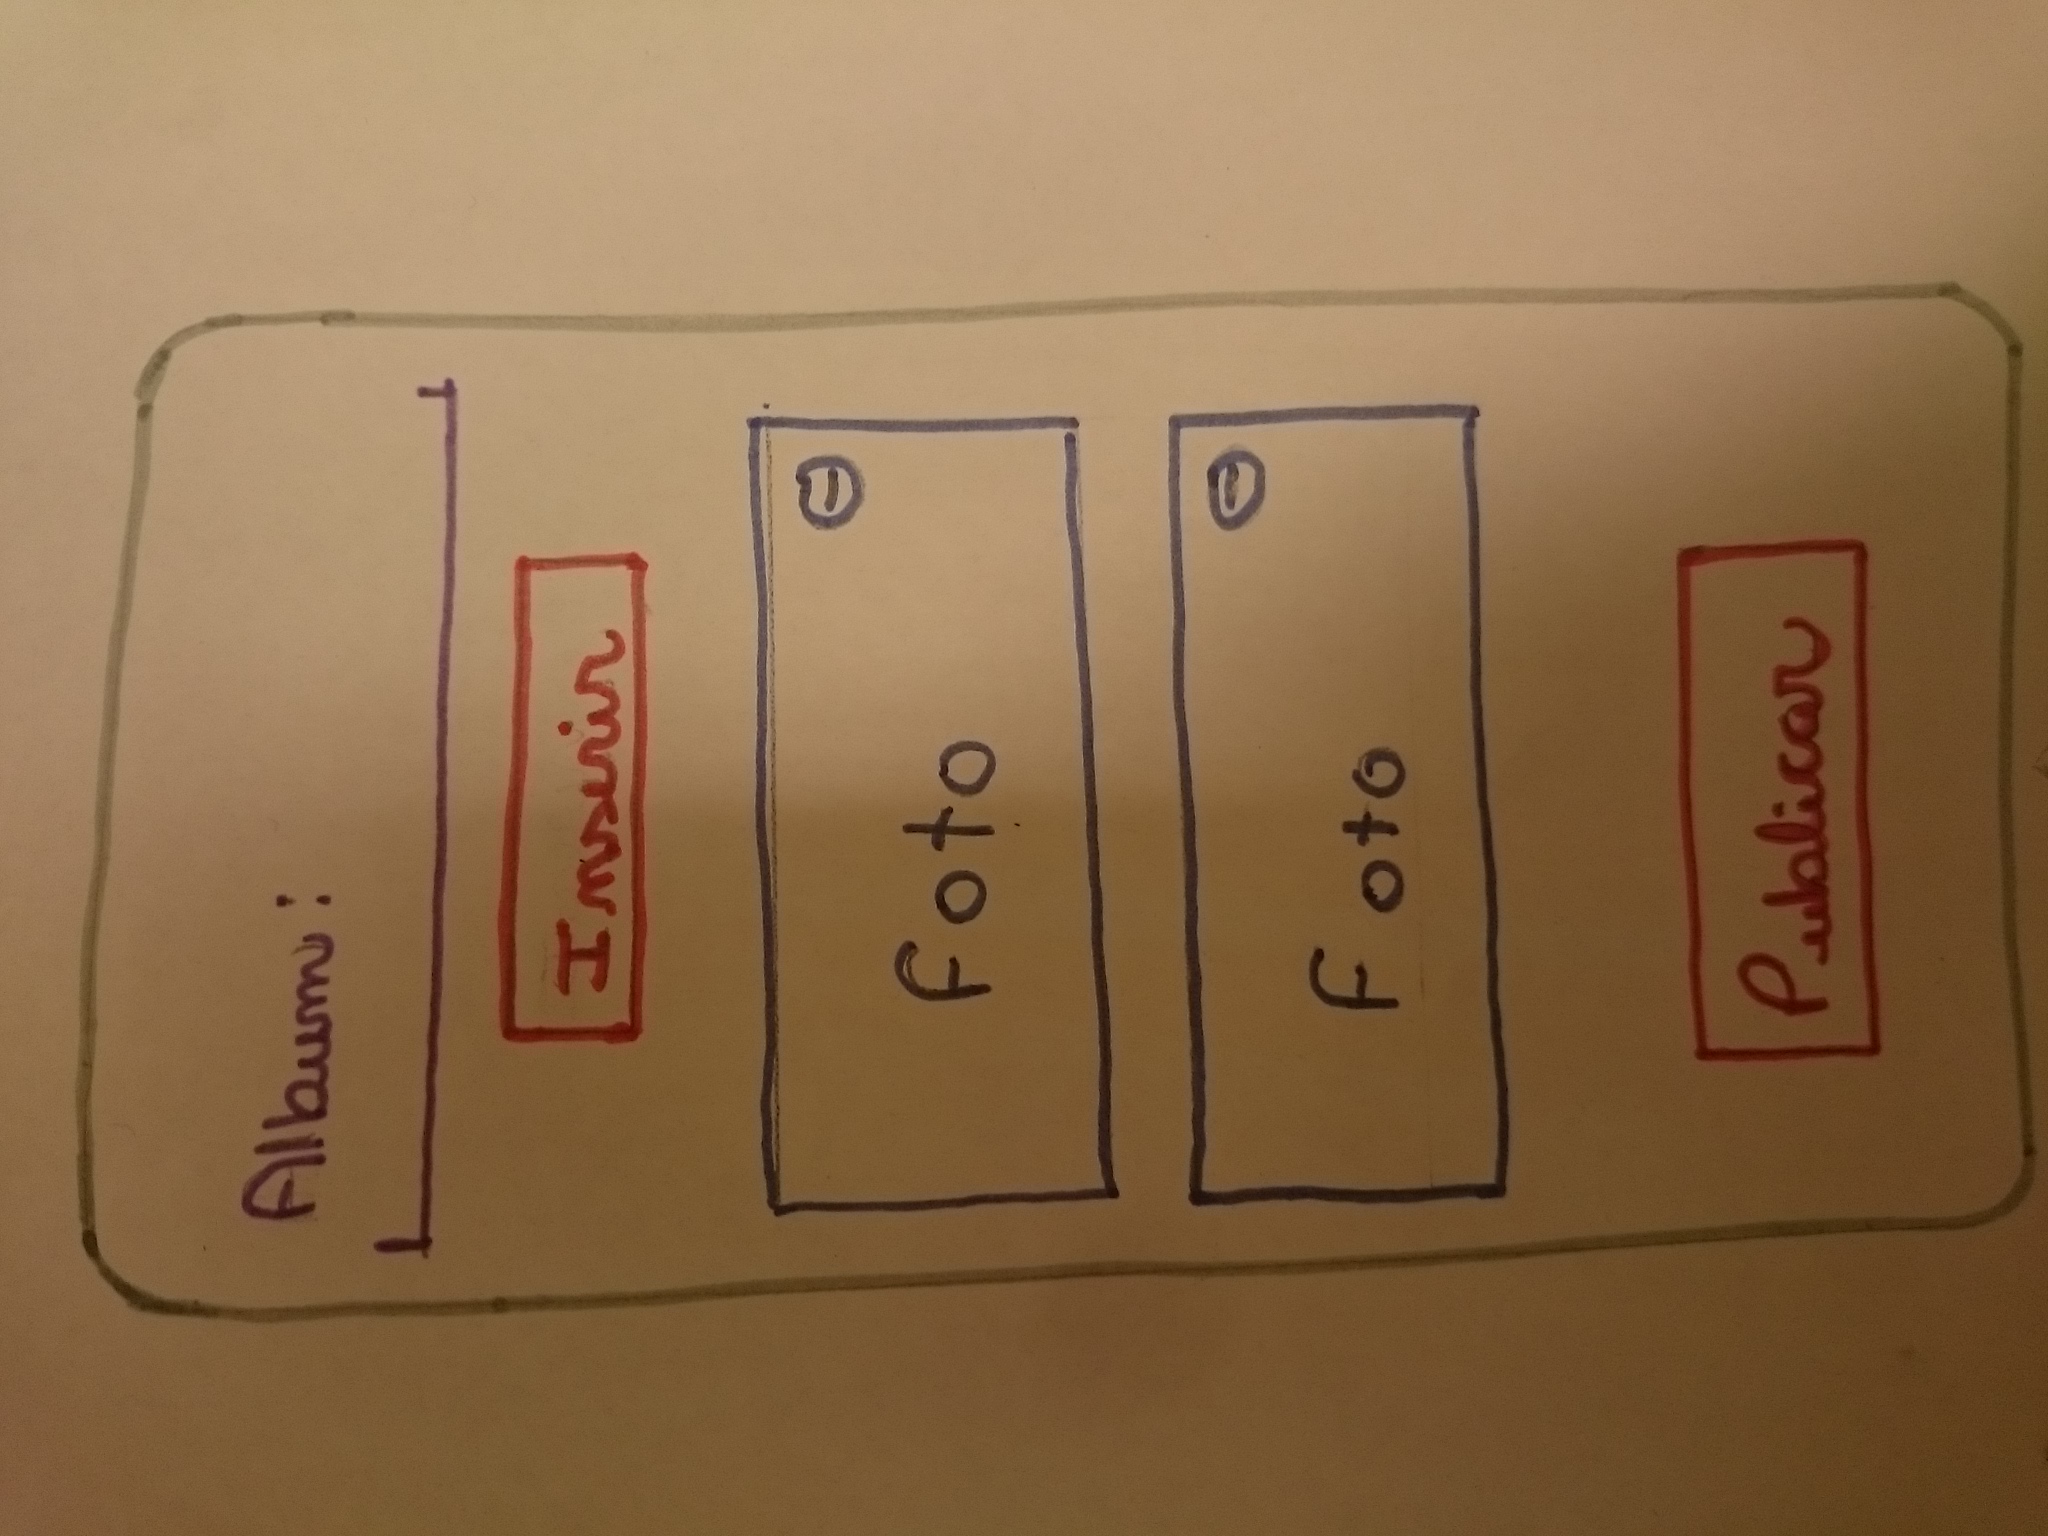 Album:
Inserir
Foto
Foto
Publicar